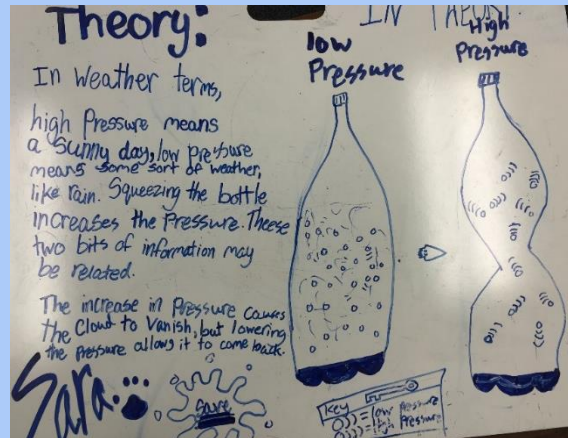 Theory:
IN THEORY:
low
Pressure
High
Pressure
In Weather terms,
high Pressure means
a sunny day, low pressure
means some sort of weather,
like rain. Squeezing the bottle
increases the Pressure. Theese
two bits of information may
be related.
The increase in Pressure causes
the Cloud to Vanish, but lowering
the pressure allows it to come back.
Sara
Save
Key
=low Pressure
=High Pressure